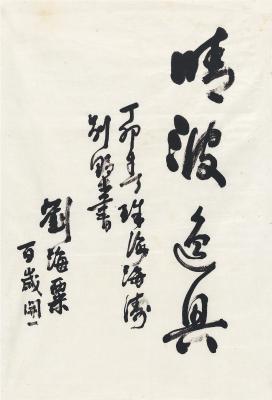 晴波逸興
丁卯春於珠海海濤
別墅書
劉海粟
百歲開一